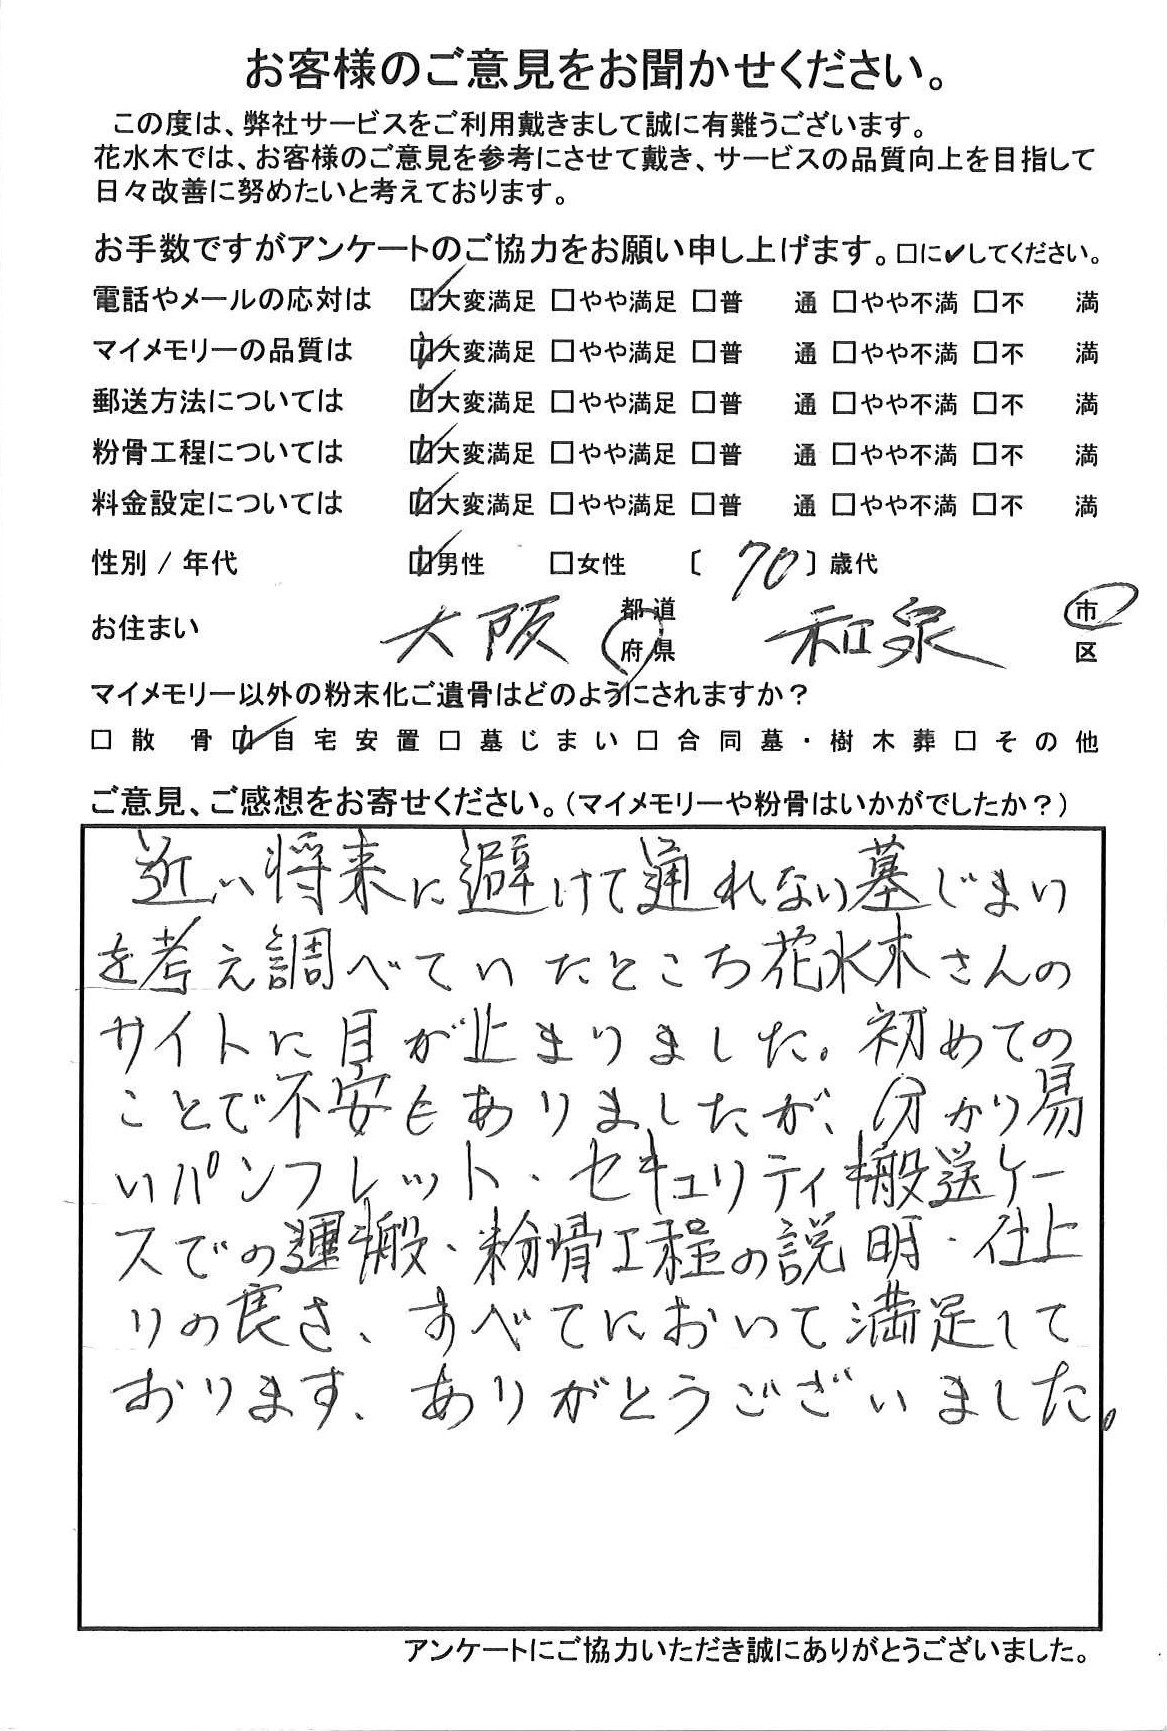 お客様のご意見をお聞かせください。
この度は、弊社サービスをご利用戴きまして誠に有難うございます。
花水木では、お客様のご意見を参考にさせて戴き、サービスの品質向上を目指して
日々改善に努めたいと考えております。
お手数ですがアンケートのご協力をお願い申し上げます。□に✔してください。
電話やメールの応対は ☑大変満足 □やや満足 □普 通 □やや不満 □不 満
マイメモリーの品質は ☑大変満足 □やや満足 □普 通 □やや不満 □不 満
郵送方法については ☑大変満足 □やや満足 □普 通 □やや不満 □不 満
粉骨工程については ☑大変満足 □やや満足 □普 通 □やや不満 □不 満
料金設定については ☑大変満足 □やや満足 □普 通 □やや不満 □不 満
性別 / 年代 ☑男性 □女性 〔 70 〕歳代
お住まい 大阪 都道府県 和泉 市区
マイメモリー以外の粉末化ご遺骨はどのようにされますか？
□散 骨 ☑自宅安置 □墓じまい □合同墓・樹木葬 □その他
ご意見、ご感想をお寄せください。（マイメモリーや粉骨はいかがでしたか？）
近い将来に避けて通れない墓じまい
を考え調べていたところ花水木さんの
サイトに目が止まりました。初めての
ことで不安もありましたが、分かり易
いパンフレット・セキュリティ搬送ケー
スでの運搬・粉骨工程の説明・仕上
りの良さ、すべてにおいて満足して
おります、ありがとうございました。
アンケートにご協力いただき誠にありがとうございました。